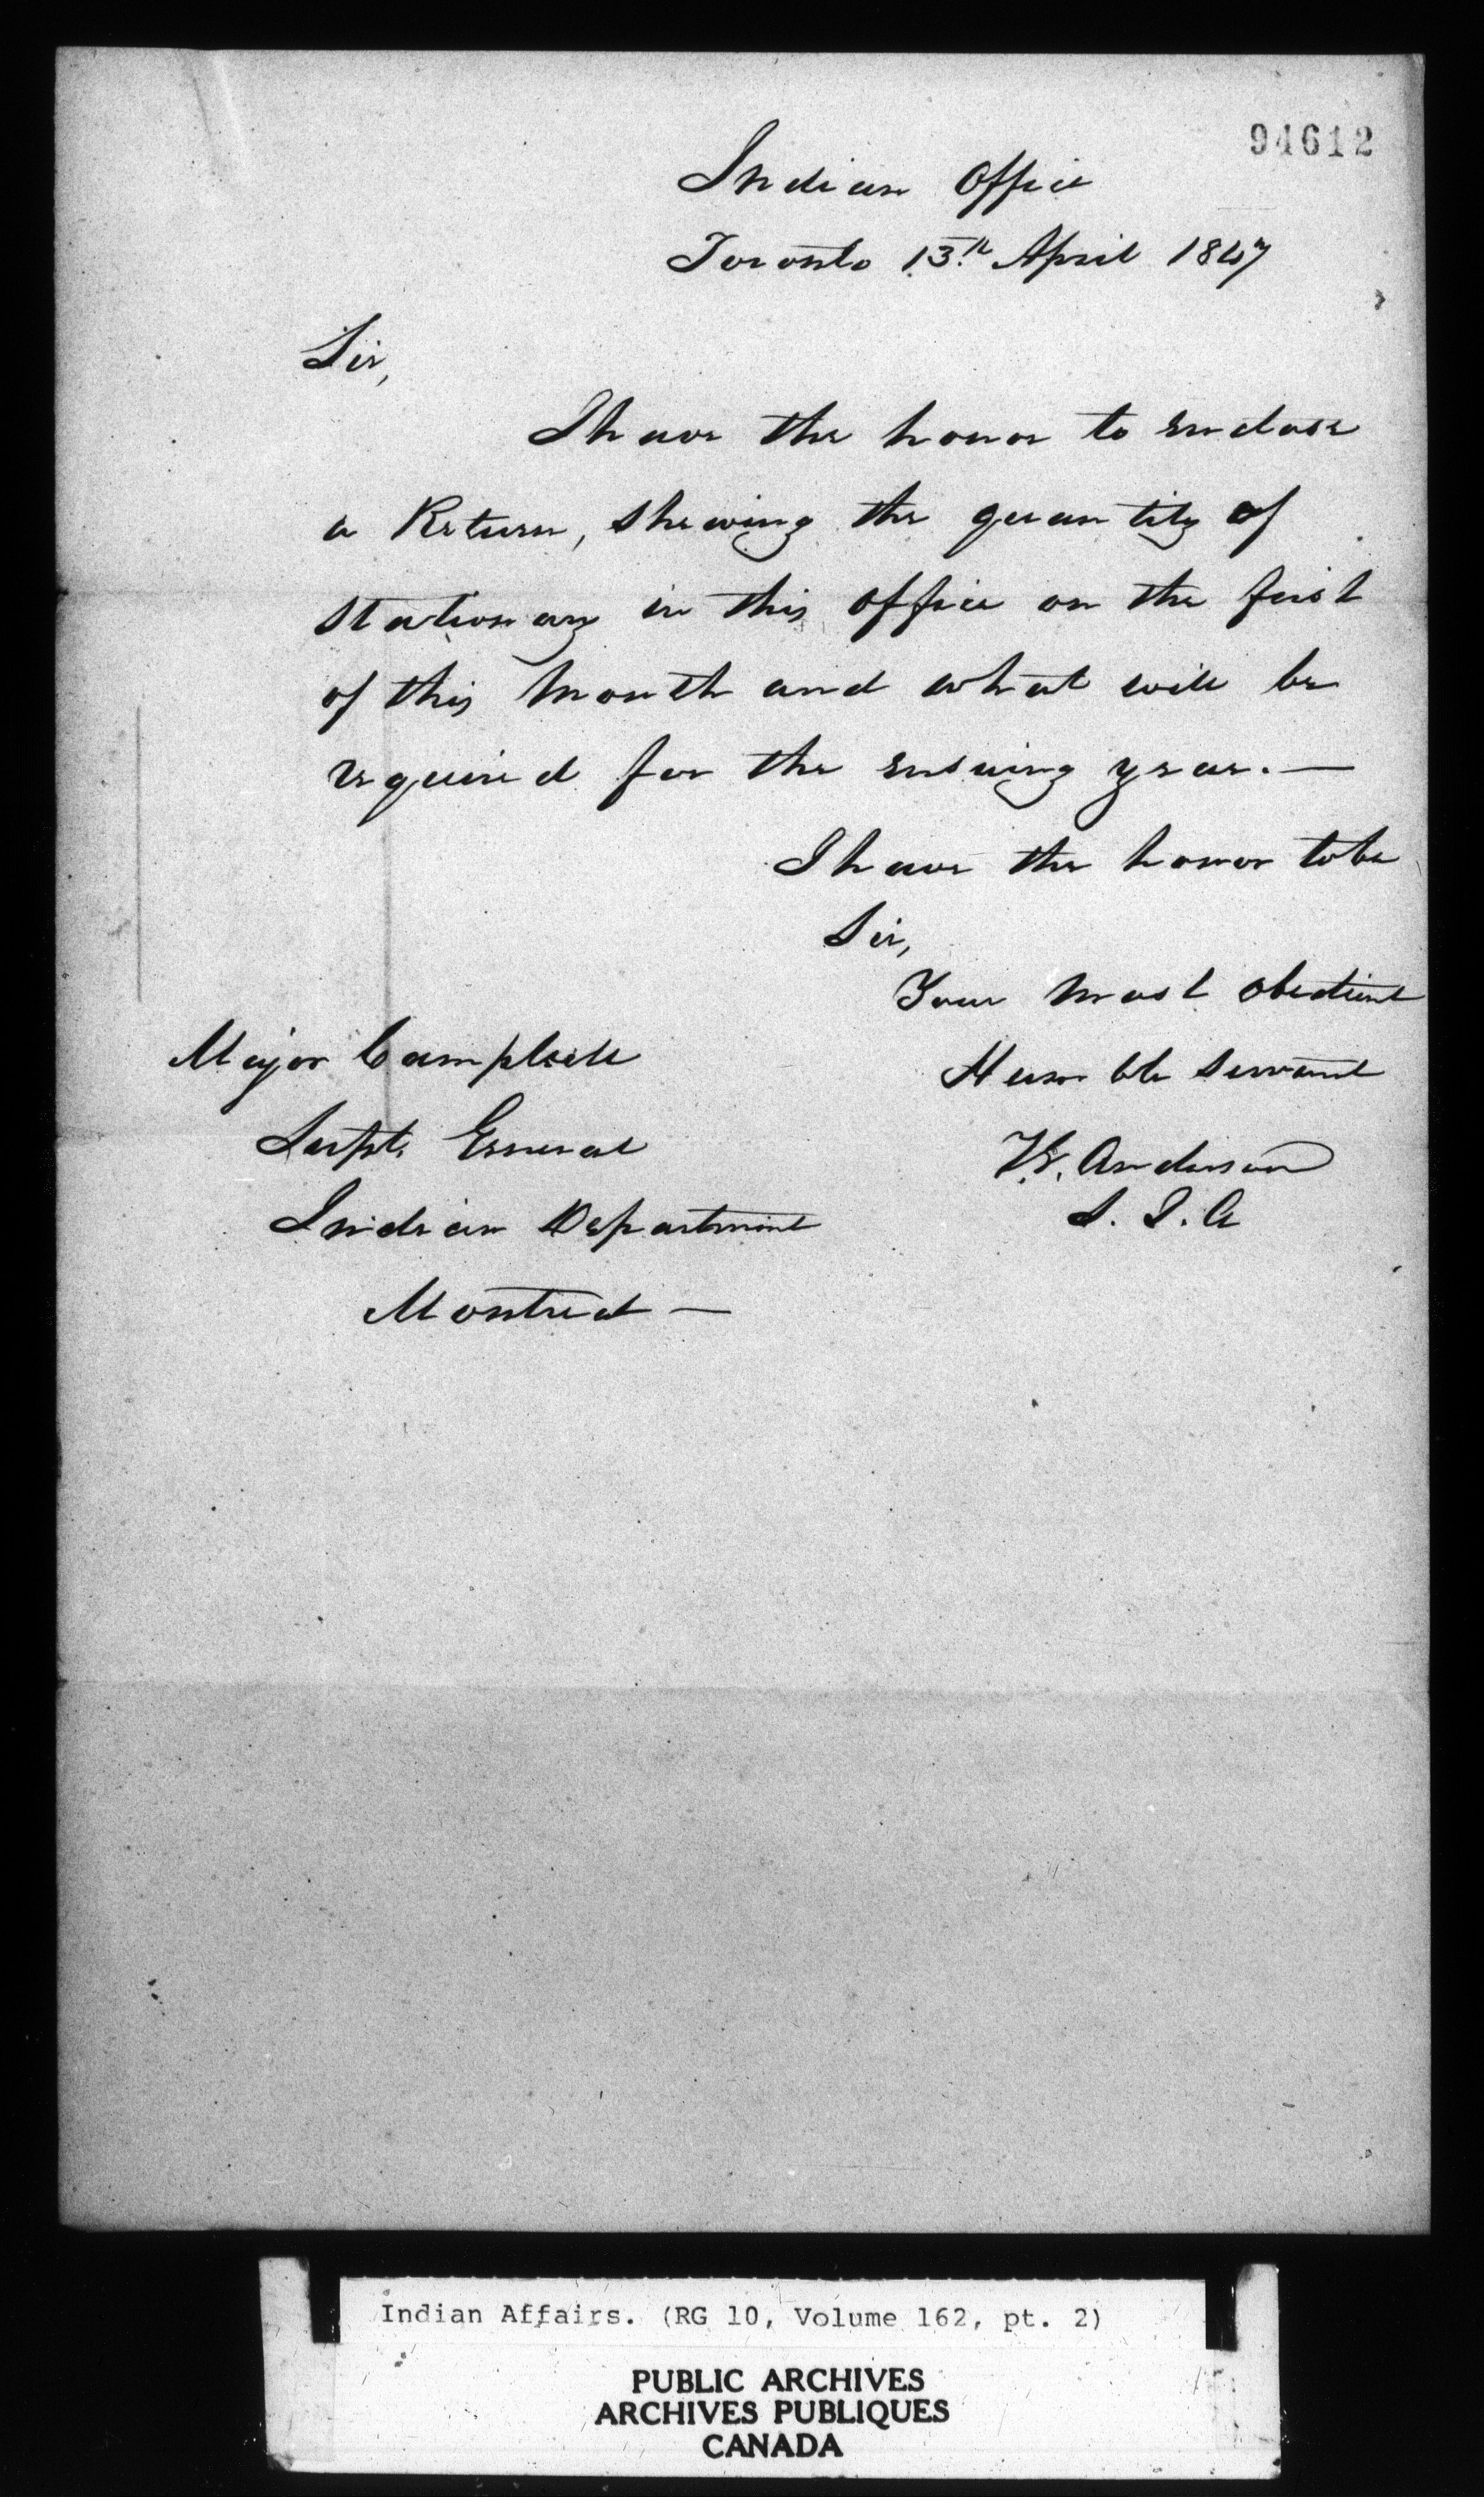 94612
Indian Office
Toronto 13th April 1847
Sir,
I have the honor to enclose
a Return, shewing the quantity of
stationary in this office on the first
of this Month and what will be
required for the ensuing year. —
I have the honor to be
Sir,
Your most obedient
Humble servant
Major Campbell
Supt. General
Indian Department
Montreal —
T.G. Anderson
S. I. A
Indian Affairs. (RG 10, Volume 162, pt. 2)
PUBLIC ARCHIVES
ARCHIVES PUBLIQUES
CANADA